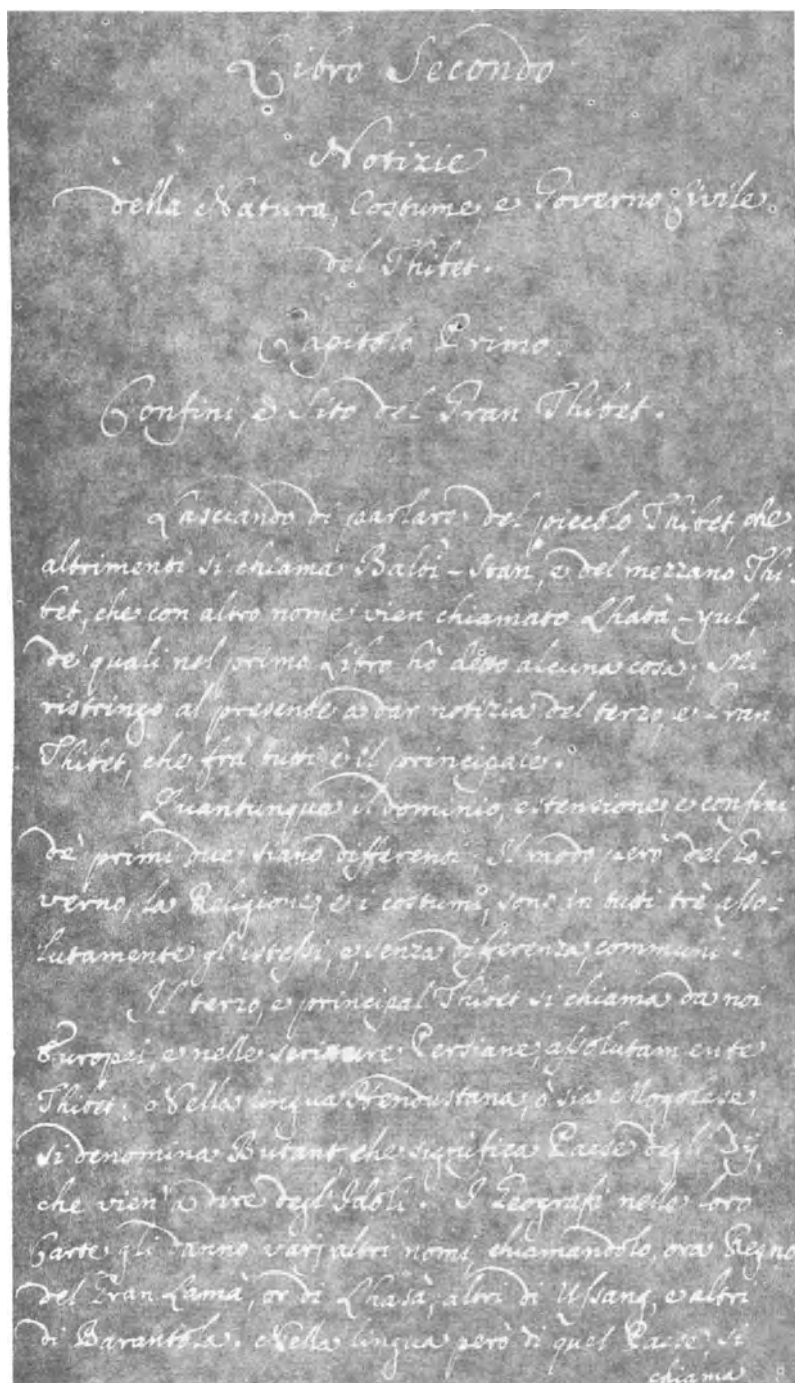 Libro Secondo
Notizie
della Natura, Costume, e Governo Civile
del Thibet.
Capitolo Primo.
Confini, e Sito del Gran Thibet.
Lasciando di parlare del piccolo Thibet, che
altrimenti si chiama Baltì-stan, e del mezzano Thi-
bet, che con altro nome vien chiamato Lhatà-yul,
de' quali nel primo Libro hò detto alcuna cosa; Mi
ristringo al presente a dar notizia del terzo, e Gran
Thibet, che frà tutti è il principale.
Quantunque il dominio, estensione, e confini
de' primi due siano differenti. Il modo però del Go-
verno, la Religione, e i costumi, sono in tutti trè asso-
lutamente gl'istessi, e senza differenza, communi.
Il terzo, e principal Thibet si chiama da noi
Europei, e nelle scritture Persiane, assolutamente
Thibet; Nella lingua Hendustana, ò sia Mogolese,
si denomina Butant, che significa Paese degl'
che vien' a dire degl'Idoli. I Geografi nelle loro
Carte gli danno varj altri nomi, chiamandolo, ora Regno
del Gran Lamà, or di Lhasà, altri di Ussang, e altri
di Barantola. Nella lingua però di quel Paese, si
chiama